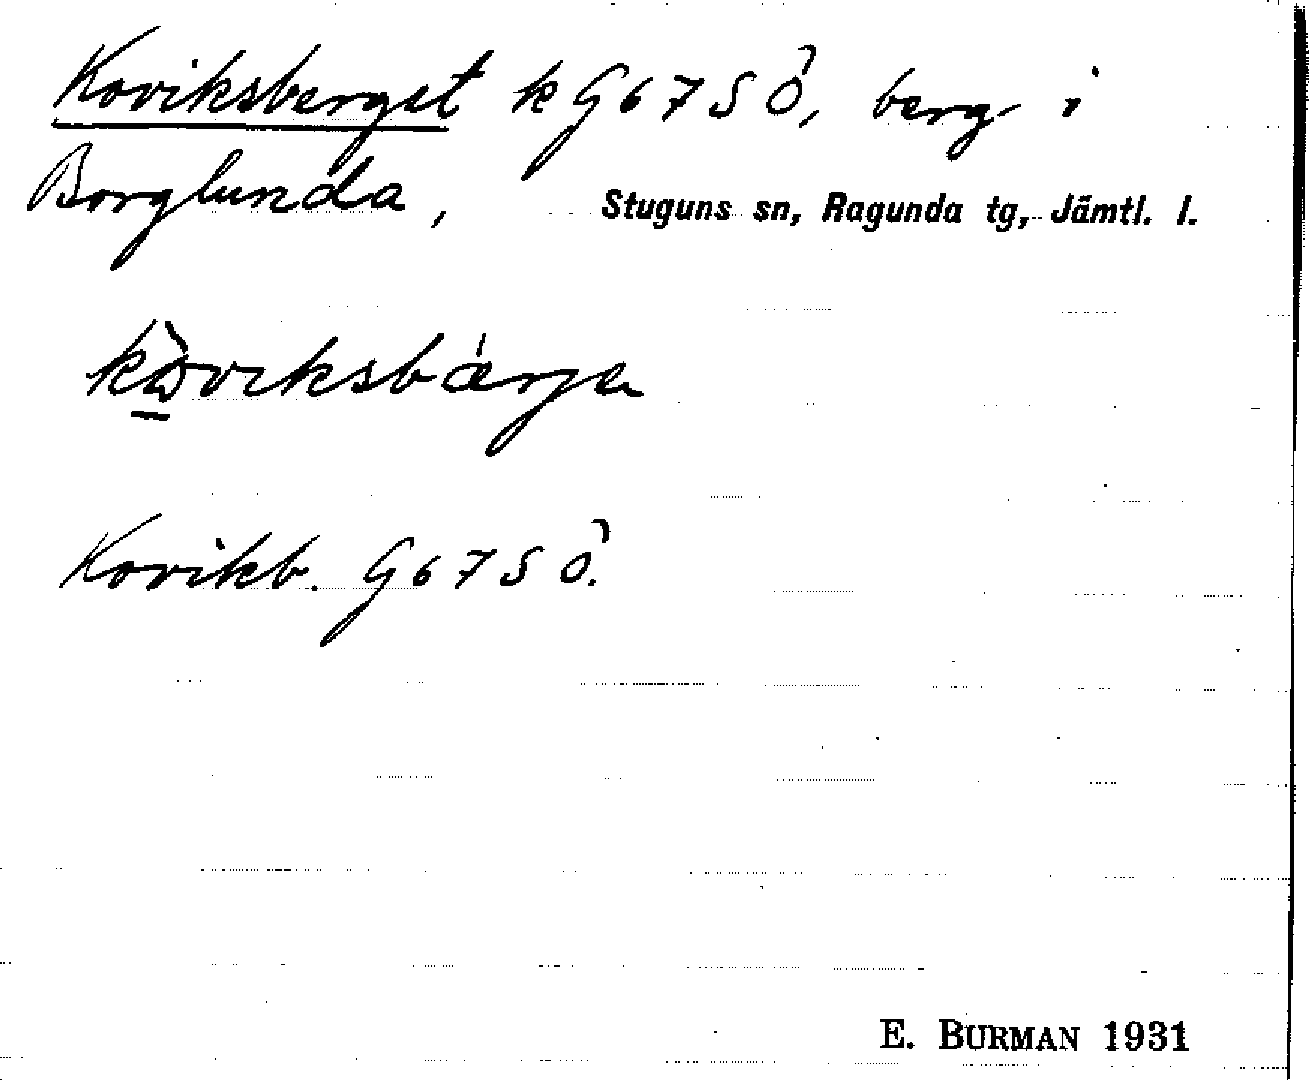 Koviksberget k G67SÖ, berg i
Borglunda, Stuguns sn, Ragunda tg, Jämtl. l.
Kovikb. G67SÖ.
E. BURMAN 1931